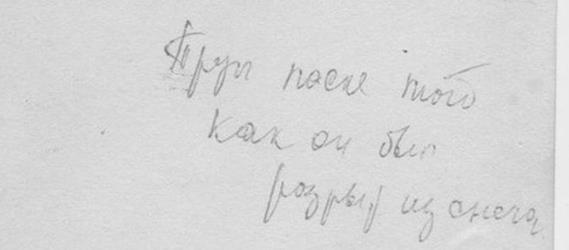 Труп после того
как он был
разрыт из снега